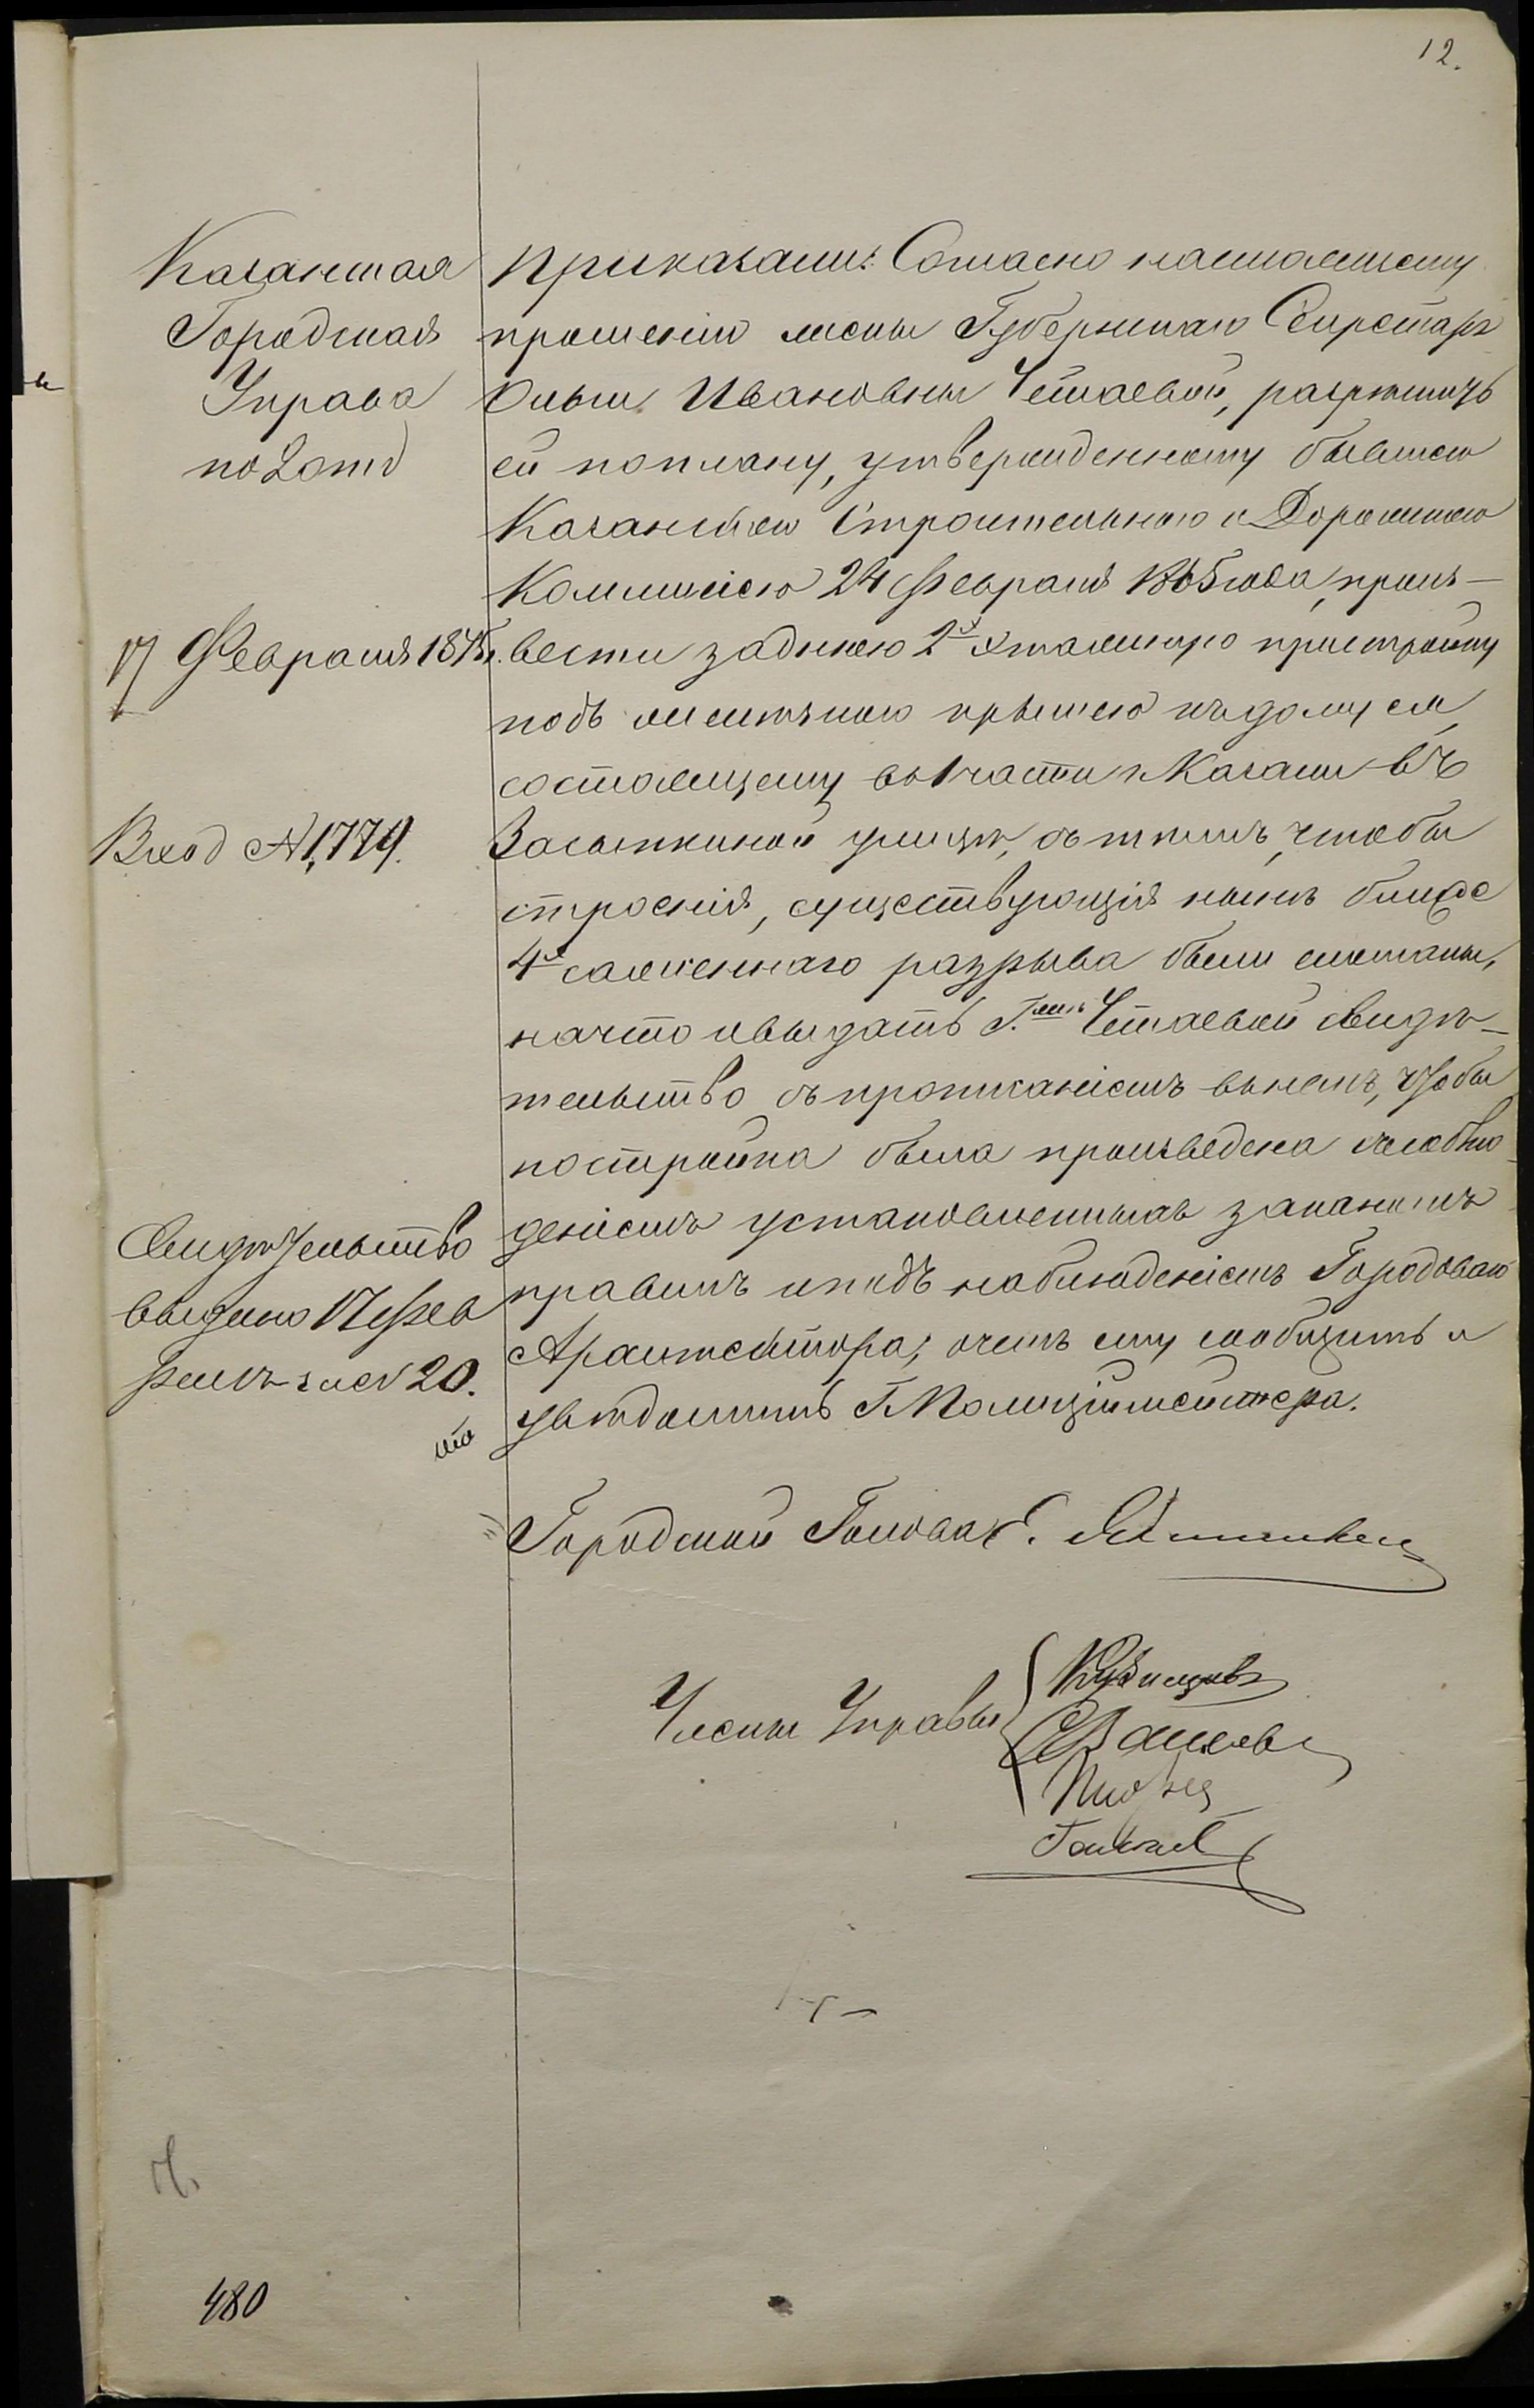 12.
Казанская
Городская
Управа
по 2 отд
17 Февраля 187
Вход № 1,779.
Свидѣтельство
выдано 17 Фев
раля за № 20.
Приказали: Согласно настоящему
прошенію жены Губернскаго Секретаря
Ольги Ивановны Чемаевой, разрѣшить
ей по плану, утвержденному бывшею
Казанскою Строительною и Дорожною
Коммисіею 24 Февраля 1865 года, произ-
вести заднюю 2х этажную пристройку
подъ желѣзною крышею къ дому ея,
состоящему въ 1 части г. Казани въ
Засыпкиной улицѣ, съ тѣмъ, чтобы
строенія, существующія нынѣ ближе
4х саженнаго разрыва были сломаны,
на что и выдать Г.жѣ Чемаевой свидѣ-
тельство съ прописаніемъ въ немъ, чтобы
постройка была произведена съ соблю-
деніемъ установленныхъ закономъ
правилъ и подъ наблюденіемъ Городоваго
Архитектора; о чемъ ему сообщить и
увѣдомить Г. Полиціймейстера.
Городской Голова Е.
Члены Управы
480